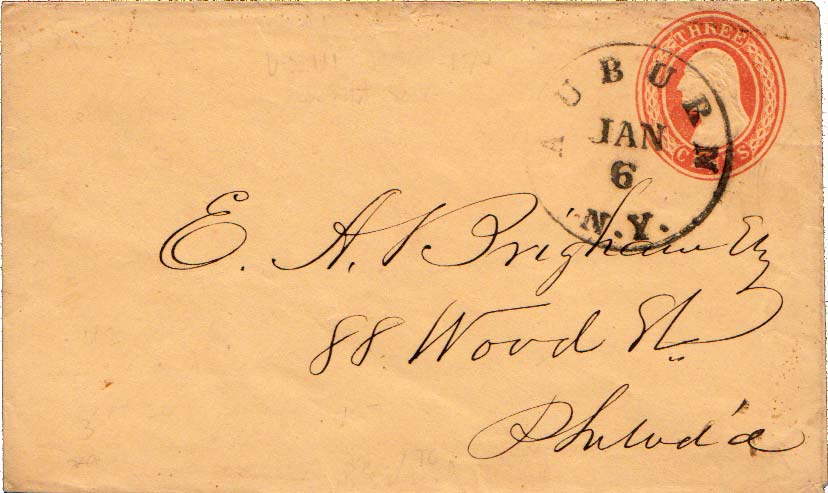 THREE
CENTS
AUBURN
JAN
6
N.Y.
E. A. Brigham Esq
88 Wood St.
Philad'a